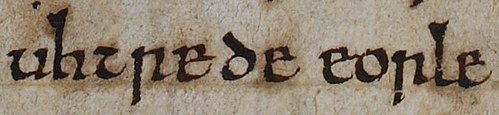 uhtrede eorle